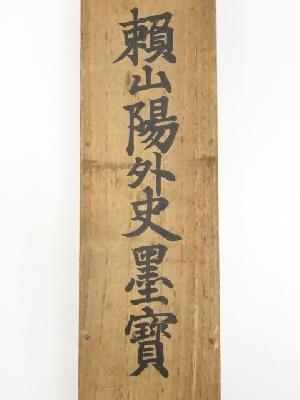 賴山陽外史墨寶